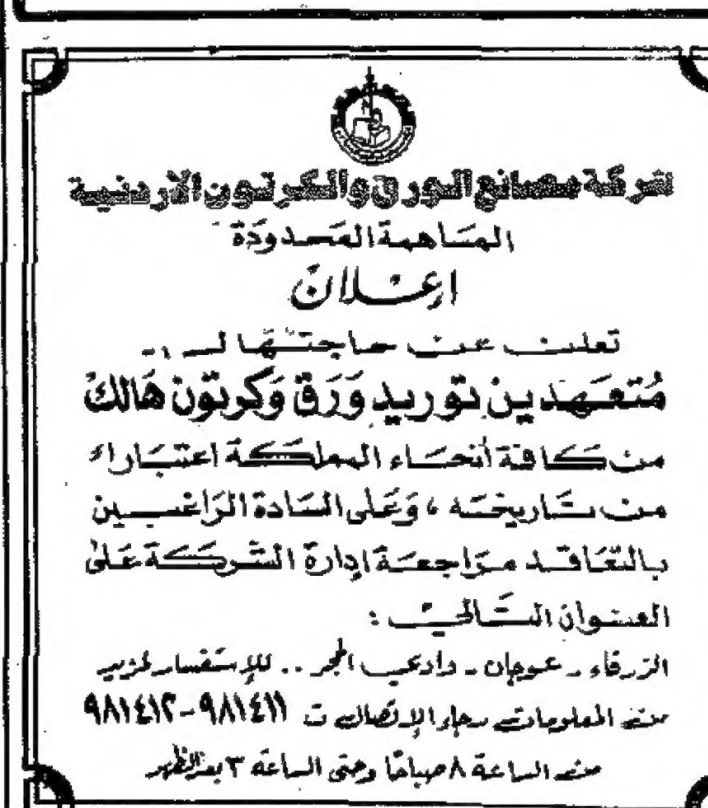 شركة مصانع الورق والكرتون الاردنية
المساهمة المحدودة
إعلان
تعلن عن حاجتها لـ
مُتعهدين توريد وَرَق وَكرتون هَالك
من كافة أنحاء المملكة اعتباراً
من تاريخه ، وَعَلى السادة الرَاغبين
بالتعَاقد مرَاجعَة إدارة الشركة عَلى
العنوان التالي :
الزرقاء - عوجان - وادي الحجر .. للإستفسار لمزيد
من المعلومات رجاء الإتصال ت ٩٨١٤١١-٩٨١٤١٢
من الساعة ٨ صباحًا وحتى الساعة ٣ بعد الظهر